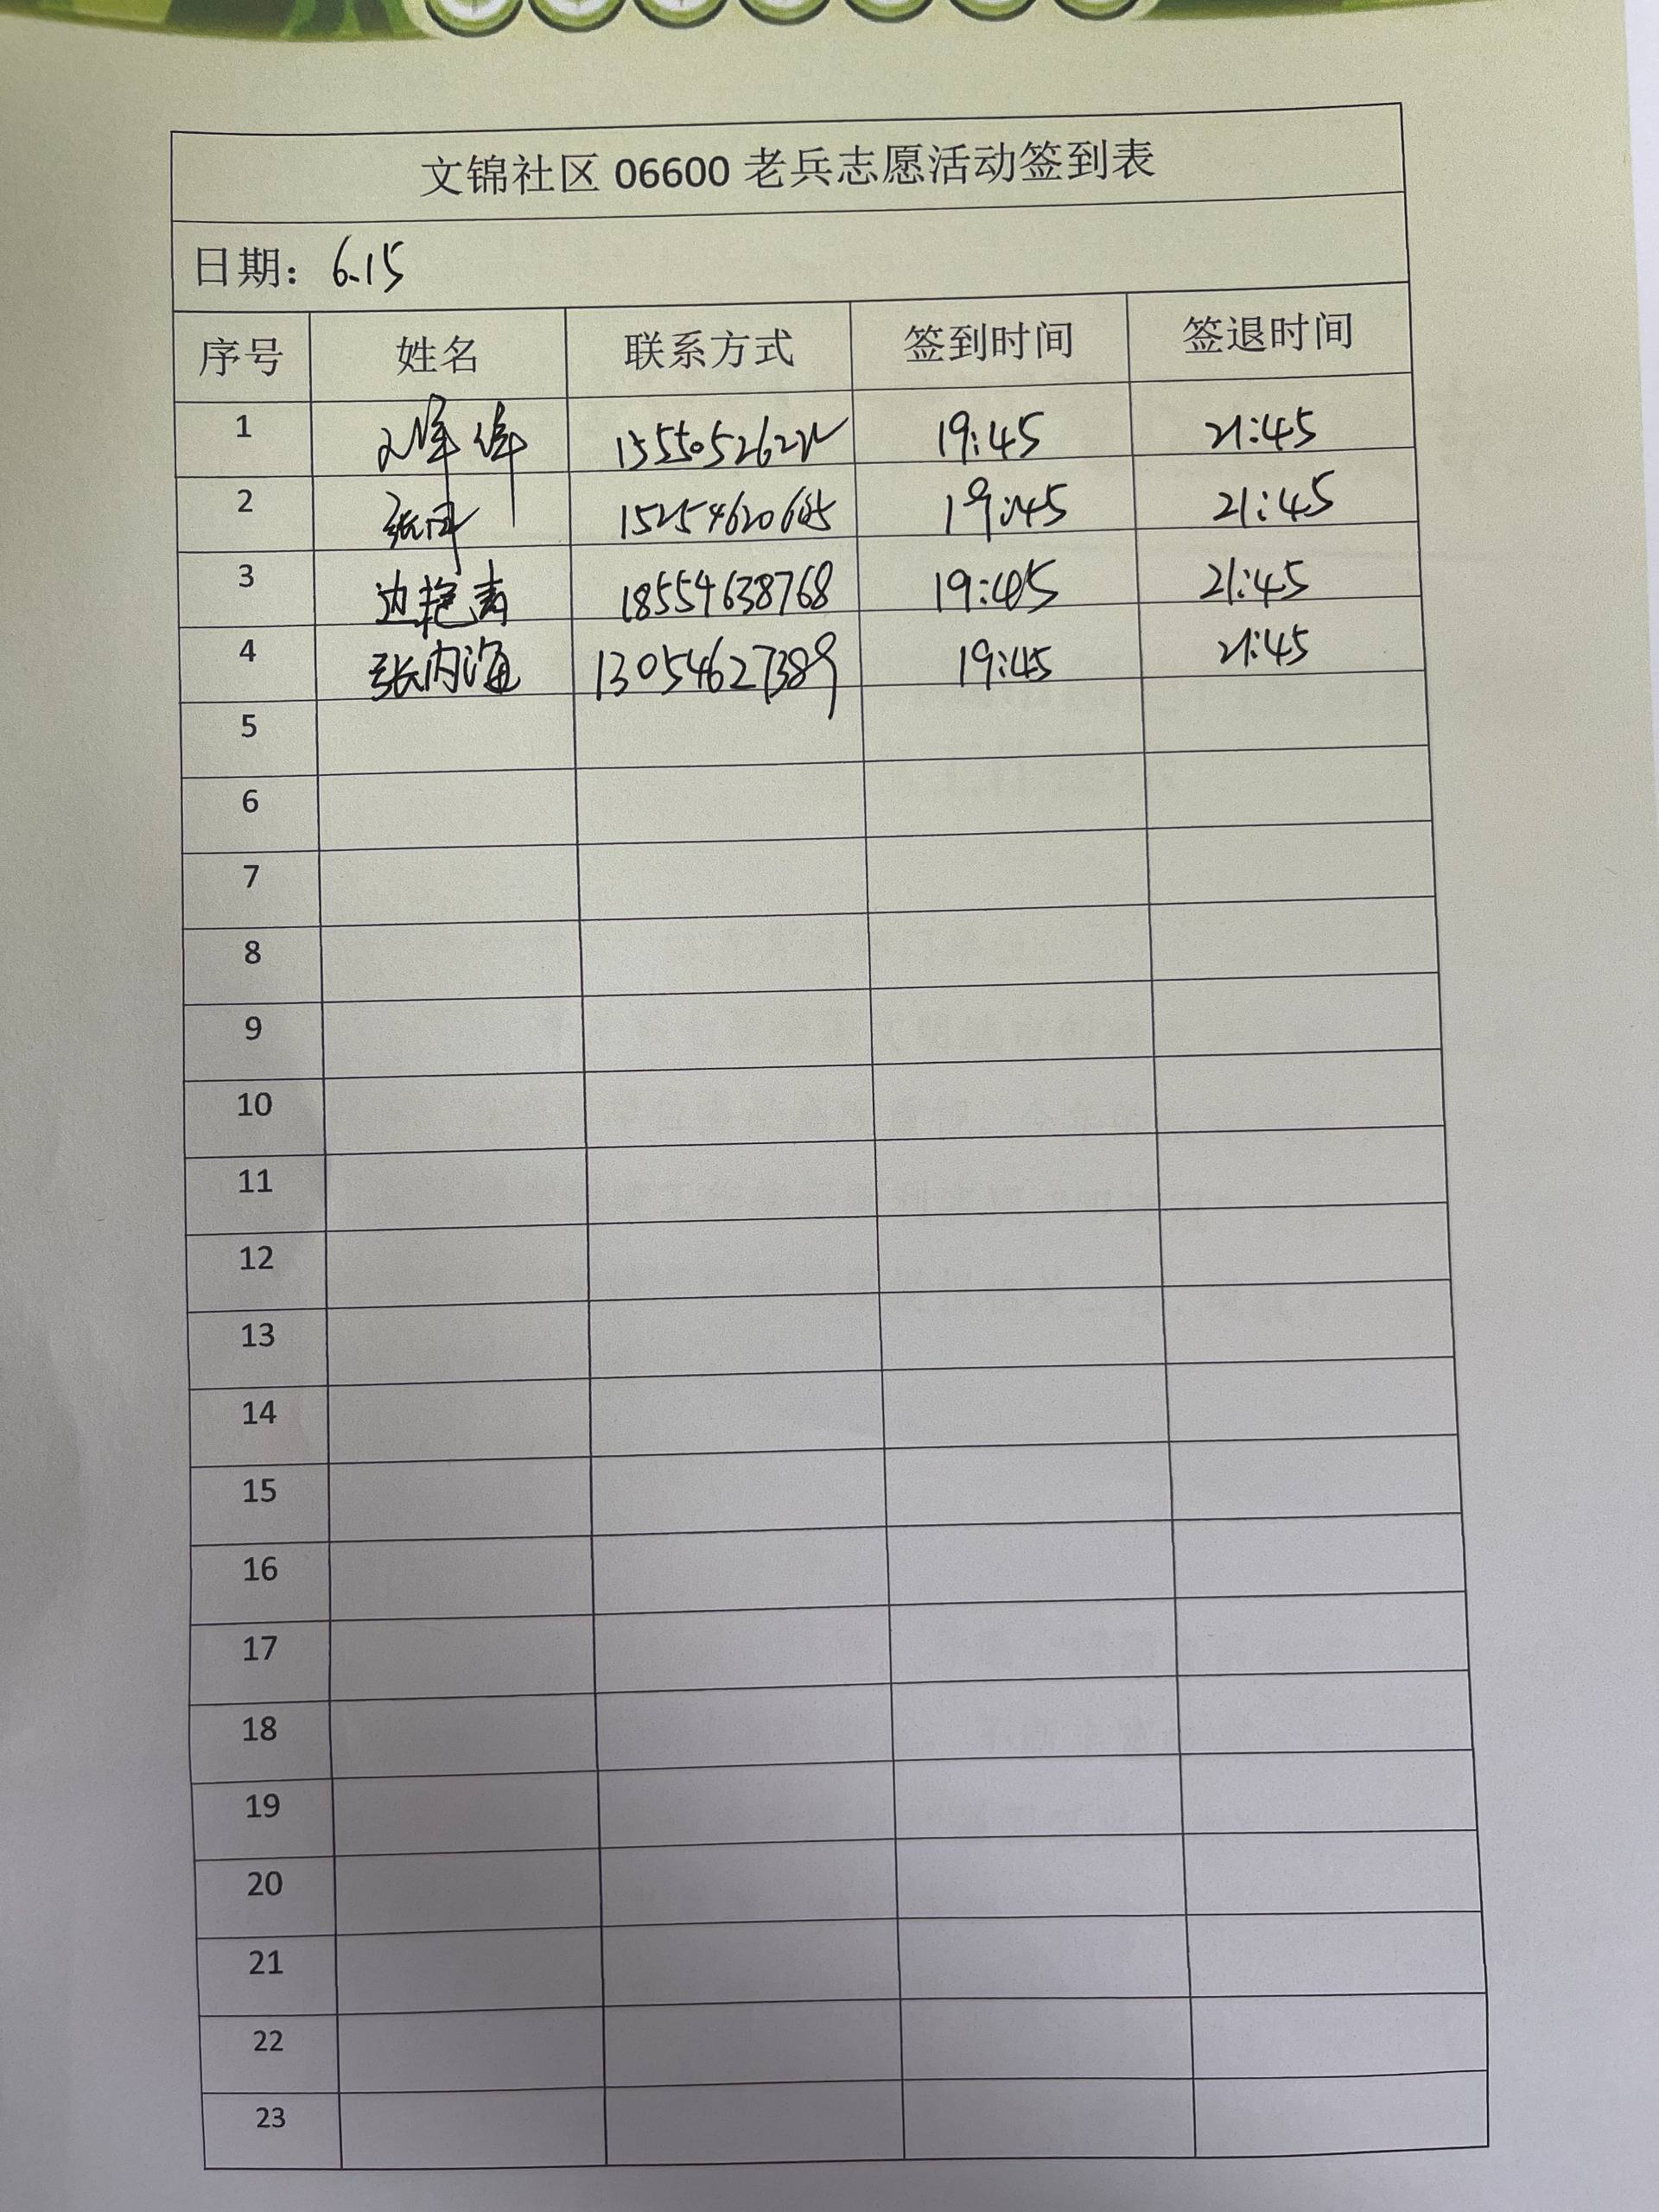 文锦社区 06600 老兵志愿活动签到表
日期：6.15
序号 姓名 联系方式 签到时间 签退时间
1 19:45 21:45
2 19:45 21:45
3 边艳青 18554638768 19:45 21:45
4 张内海 13054627389 19:45 21:45
5
6
7
8
9
10
11
12
13
14
15
16
17
18
19
20
21
22
23